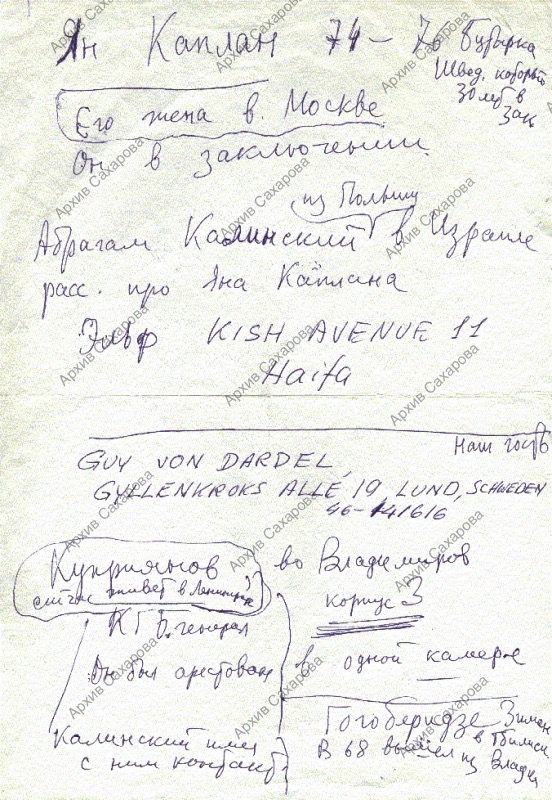 Ян Каплан 74–76 Бутырка
Швед, который
30 лет в
зак
Его жена в. Москве
Он в заключении.
из Польши
Абрагам Калинский в Израиле
расс. про Яна Каплана
Эльф KISH AVENUE 11
Haifa
Наш гость
GUY VON DARDEL,
GYLLENKROKS ALLÉ 19, LUND, SCHWEDEN
46-141616
Куприянов во Владимиров
сейчас живет в Ленинграде
корпус 3
КГБ. генерал
Он был арестован в одной камере
Гогоберидзе Симон
в Тбилиси
Калинский имел
с ним контакт
В 68 вышел из Влади
Архив Сахарова